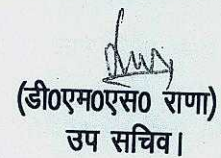 (डी०एम०एस० राणा)
उप सचिव।